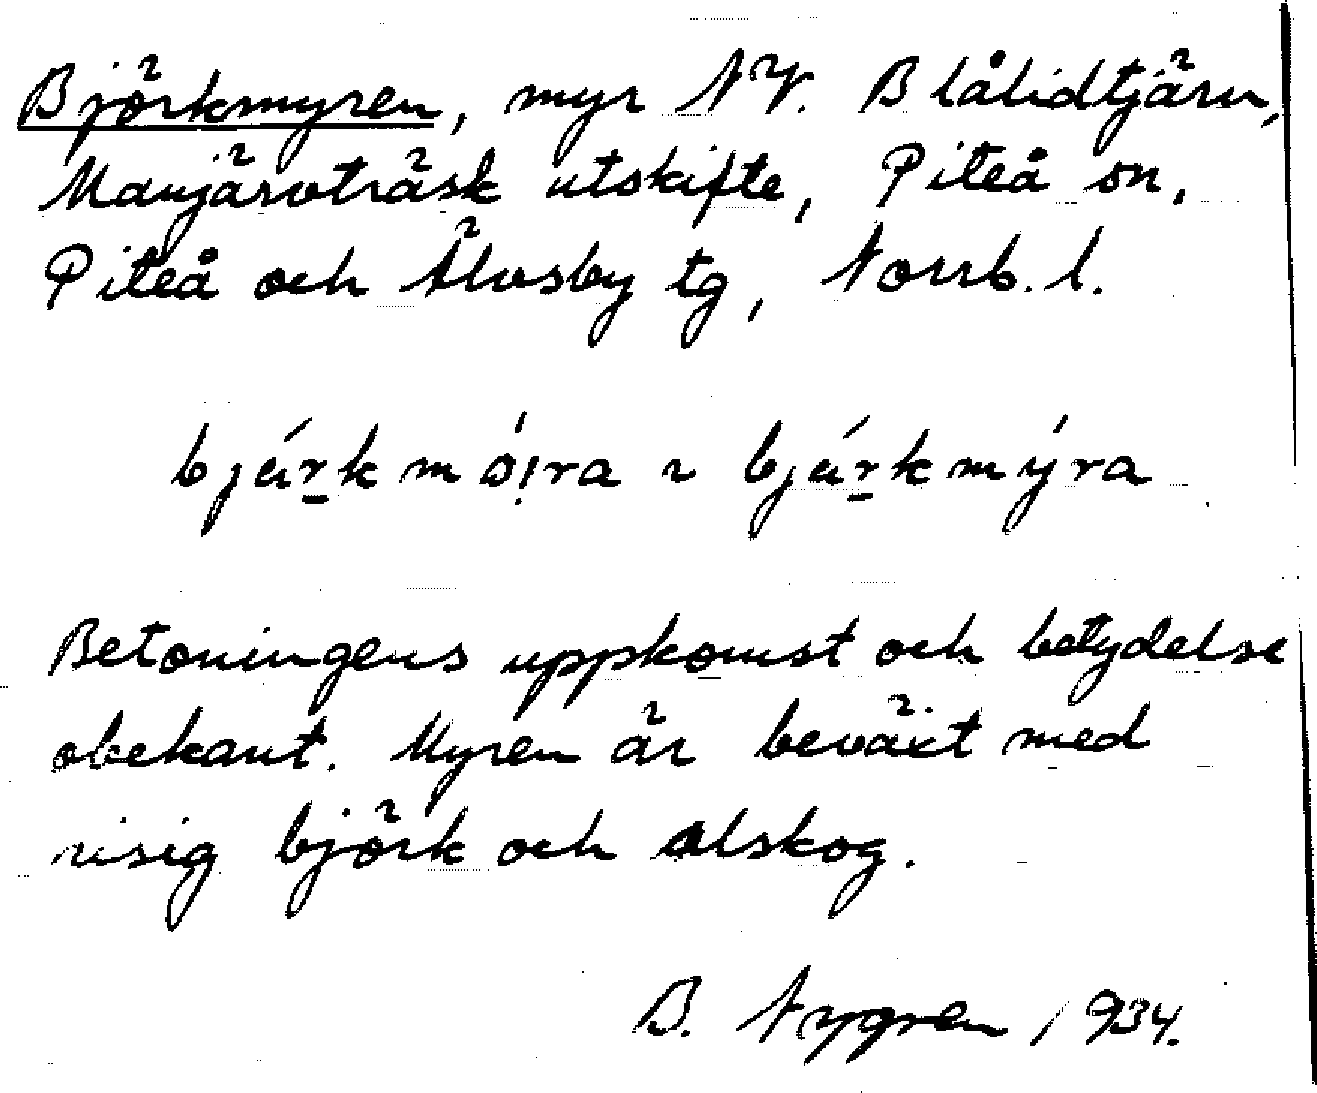 Björkmyren, myr NV. Blålidtjärn,
Manjärvträsk utskifte, Piteå sn,
Piteå och Älvsby tg, Norrb. l.
bjúr̠kmǿ!ra ~ bjúr̠kmýra
Betoningens uppkomst och betydelse
obekant. Myren är beväxt med
risig björk och alskog.
B. Nygren 1934.